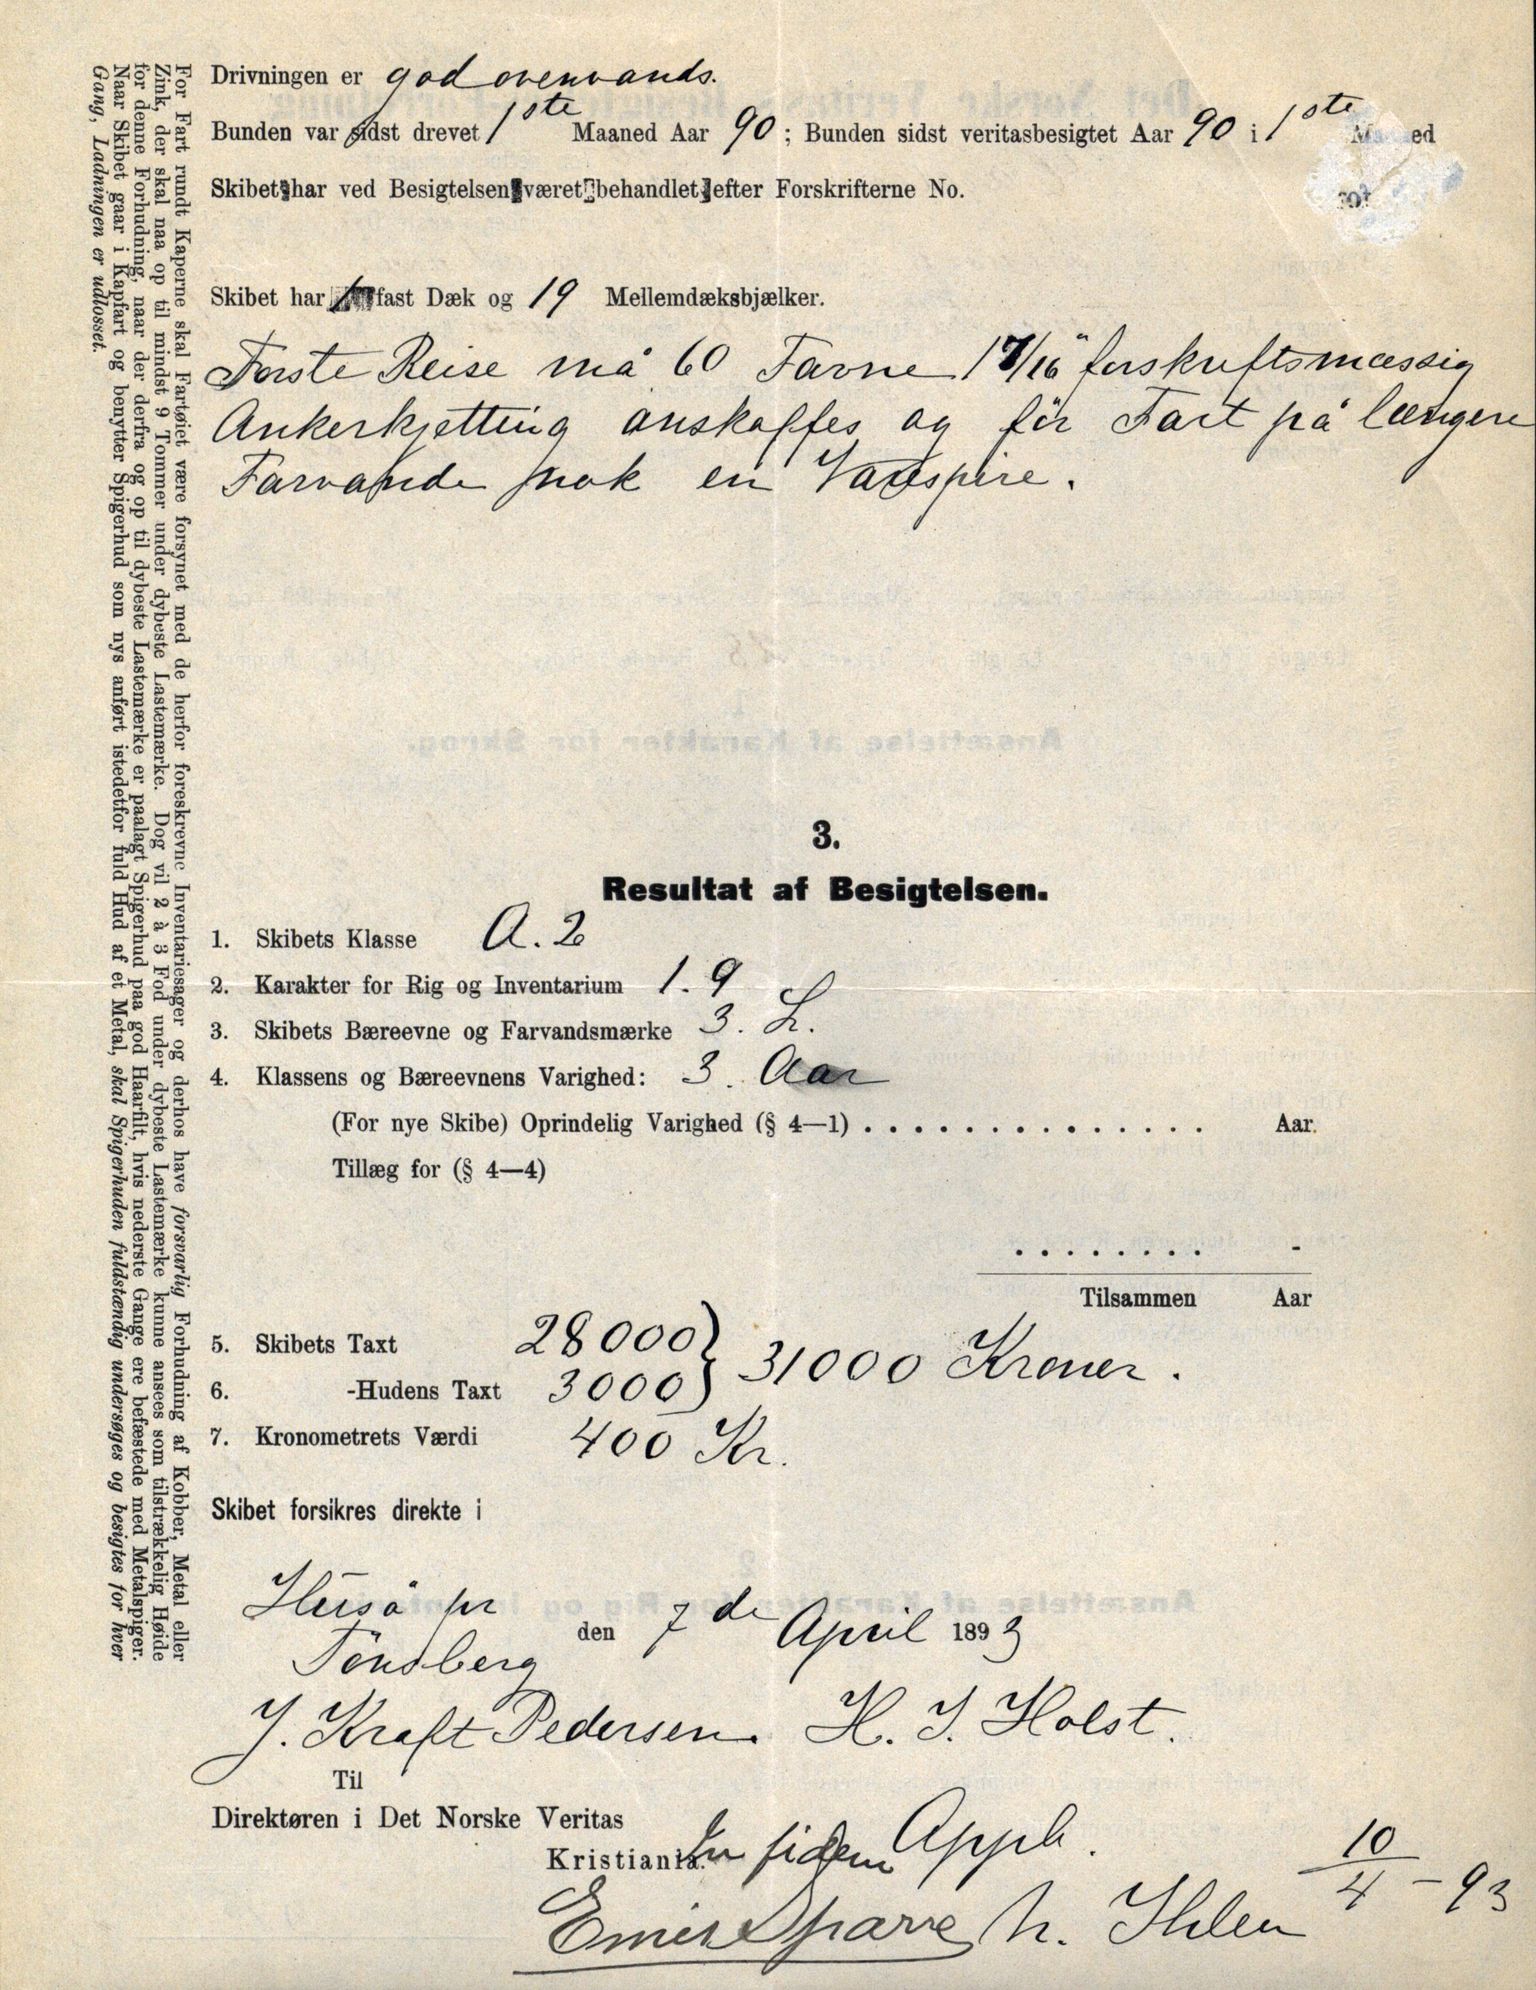 Drivningen er god ovenvands.
Bunden var sidst drevet 1ste Maaned Aar 90 ; Bunden sidst veritasbesigtet Aar 90 i 1ste Maaned
Skibet har ved Besigtelsen været behandlet efter Forskrifterne No. for
Skibet har 1 fast Dæk og 19 Mellemdæksbjælker.
Første Reise må 60 Favne 1 7/16" forskriftsmæssig
Ankerkjetting anskaffes og før Fart på længere
Farvande nok en Varespire.
3.
Resultat af Besigtelsen.
1. Skibets Klasse A. 2
2. Karakter for Rig og Inventarium 1. 9
3. Skibets Bæreevne og Farvandsmærke 3. L.
4. Klassens og Bæreevnens Varighed: 3. Aar
(For nye Skibe) Oprindelig Varighed (§ 4—1) . . . . . . . . . . . . . . . Aar.
Tillæg for (§ 4—4)
. . . . . . . . -
Tilsammen Aar
5. Skibets Taxt 28000 } 31000 Kroner.
6. -Hudens Taxt 3000
7. Kronometrets Værdi 400 Kr.
Skibet forsikres direkte i
Husø pr
Tönsberg den 7de April 1893
J. Kraft Pedersen. H. J. Holst.
Til
Direktøren i Det Norske Veritas
Kristiania. In fidem Appb. 10/4 – 93
Emil Sparre N. Ihlen
For Fart rundt Kaperne skal Fartøiet være forsynet med de herfor foreskrevne Inventariesager og derhos have forsvarlig Forhudning af Kobber, Metal eller
Zink, der skal naa op til mindst 9 Tommer under dybeste Lastemærke. Dog vil 2 à 3 Fod under dybeste Lastemærke kunne ansees som tilstrækkelig Høide
for denne Forhudning, naar der derfra og op til dybeste Lastemærke er paalagt Spigerhud paa god Haarfilt, hvis nederste Gange ere befæstede med Metalspiger.
Naar Skibet gaar i Kapfart og benytter Spigerhud som nys anført istedetfor fuld Hud af et Metal, skal Spigerhuden fuldstændig undersøges og besigtes for hver
Gang, Ladningen er udlosset.